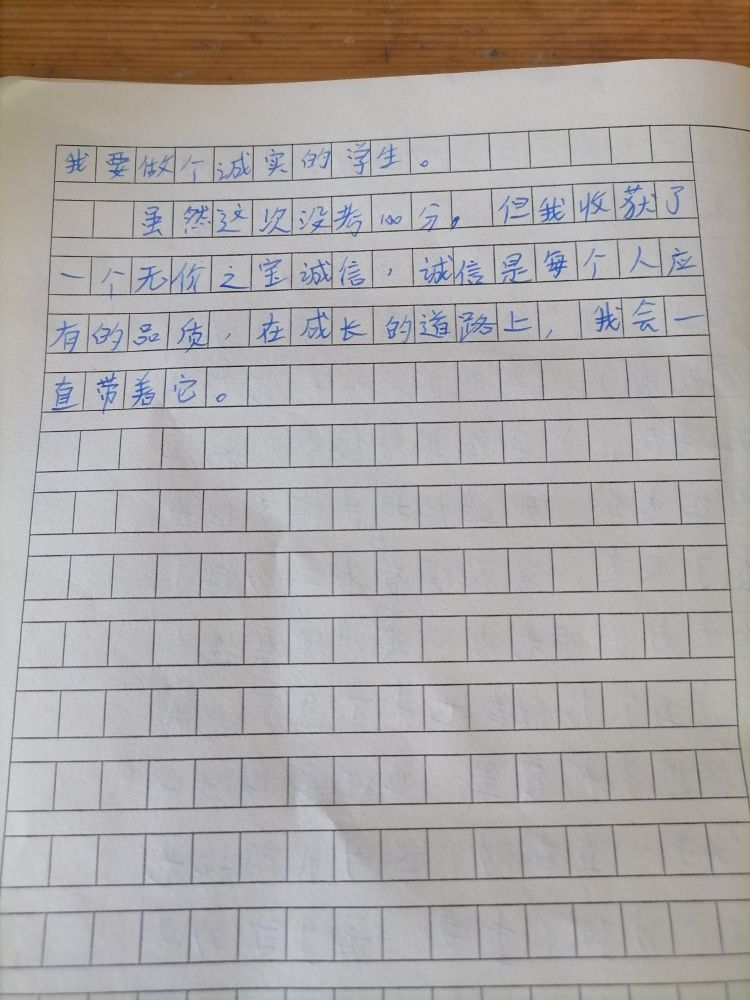 我要做个诚实的学生。
虽然这次没考100分，但我收获了
一个无价之宝诚信，诚信是每个人应
有的品质，在成长的道路上，我会一
直带着它。